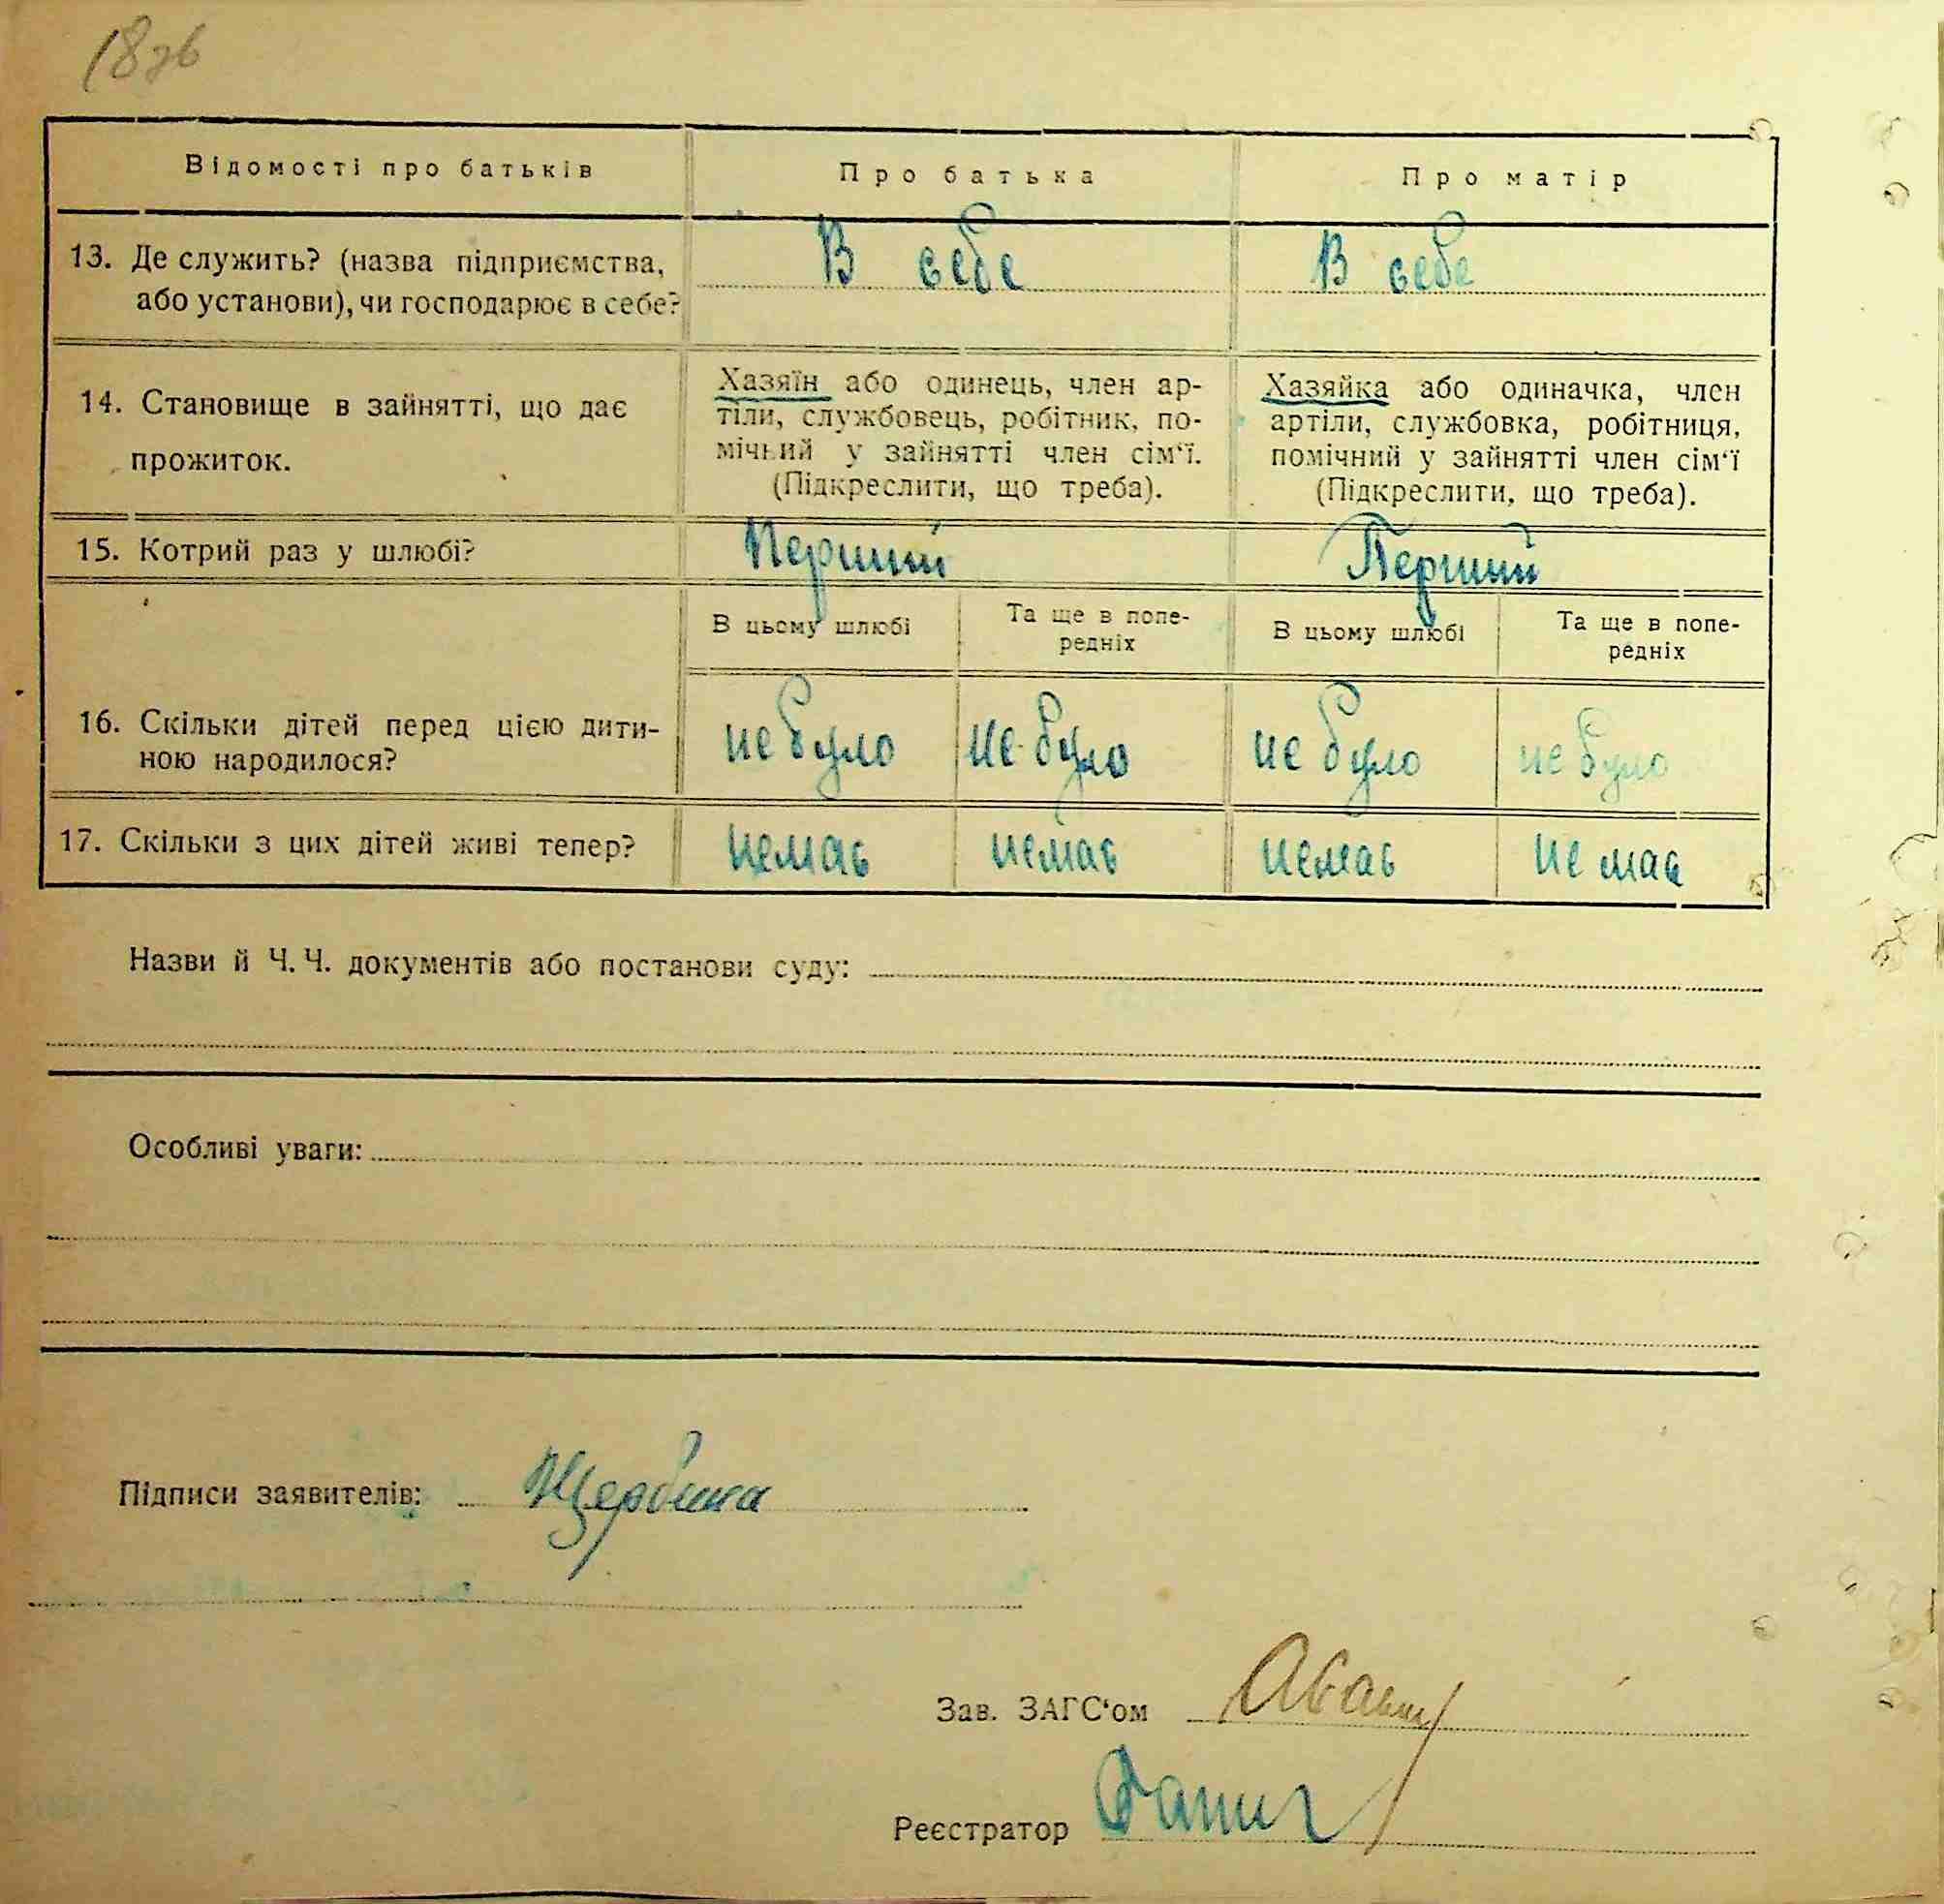 18зв
Відомості про батьків Про батька Про матір
13. Де служить? (назва підприємства, В себе В себе
або установи), чи господарює в себе?
14. Становище в зайнятті, що дає
прожиток.
Хазяїн або одинець, член ар-
тіли, службовець, робітник, по-
мічний у зайнятті член сім‘ї.
(Підкреслити, що треба).
Хазяйка або одиначка, член
артіли, службовка, робітниця,
помічний у зайнятті член сім‘ї
(Підкреслити, що треба).
15. Котрий раз у шлюбі? Перший Перший
В цьому шлюбі
Та ще в попе-
редніх
В цьому шлюбі
Та ще в попе-
редніх
16. Скільки дітей перед цією дити-
ною народилося?
не було не було не було не було
17. Скільки з цих дітей живі тепер? немає немає немає не має
Назви й Ч. Ч. документів або постанови суду:
Особливі уваги:
Підписи заявителів: Щербина
Зав. ЗАГС‘ом
Реєстратор